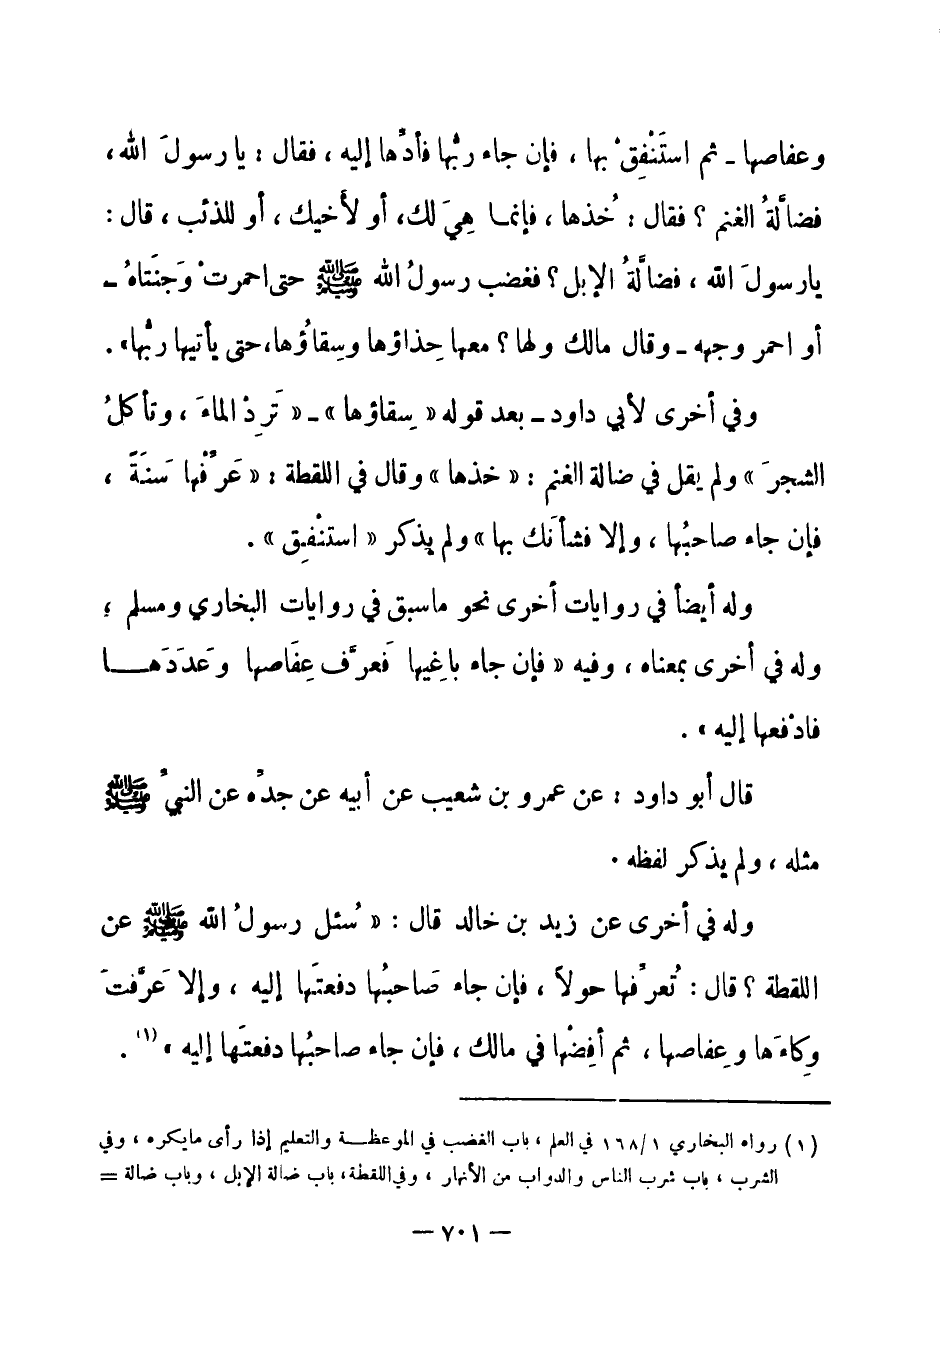 وعفاصها ـ ثم استَنْفِقْ بها ، فإن جاء ربُّها فأدِّها إليه ، فقال : يا رسولَ الله ،
فضالَّةُ الغنم ؟ فقال : خُذها ، فإنمـا هِيَ لك، أو لأَخيك ، أو للذئب ، قال :
يا رسولَ الله ، فضالَّةُ الإبل ؟ فغضب رسولُ الله ﷺ حتى احمرتْ وَجنَتاهُ ـ
أو احمر وجهه ـ وقال مالك ولها ؟ معها حِذاؤها وسِقاؤُها،حتى يأتيها ربُّها» .
وفي أخرى لأبي داود ـ بعد قوله « سِقاؤها » ـ « تَرِدْ الماءَ ، وتأكلُ
الشجرَ » ولم يقل في ضالة الغنم : « خذها » وقال في اللقطة : « عَرِّفْها سَنَةً ،
فإن جاء صاحبُها ، وإلا فشأنَك بها » ولم يذكر « استنْفِق » .
وله أيضاً في روايات أخرى نحو ماسبق في روايات البخاري ومسلم ؛
وله في أخرى بمعناه ، وفيه « فإن جاء باغِيها فَعرَّف عِفَاصها وعَدَدَهـــا
فادْفعها إليه » .
قال أبو داود : عن عمرو بن شعيب عن أبيه عن جدِّه عن النبيِّ ﷺ
مثله ، ولم يذكر لفظه .
وله في أخرى عن زيد بن خالد قال : « سُئل رسولُ الله ﷺ عن
اللقطة ؟ قال : تُعرِّفها حولاً ، فإن جاء صَاحبُها دفعتَها إليه ، وإلا عَرَّفتَ
وِكاءَها وعِفاصها ، ثم أفِضْها في مالك ، فإن جاء صاحبُها دفعتَها إليه » (١) .
(١) رواه البخاري ١/١٦٨ في العلم ، باب الغضب في الموعظـــة والتعليم إذا رأى مايكره ، وفي
الشرب ، باب شرب الناس والدواب من الأنهار ، وفي اللقطة، باب ضالة الإبل ، وباب ضالة =
— ٧٠١ —